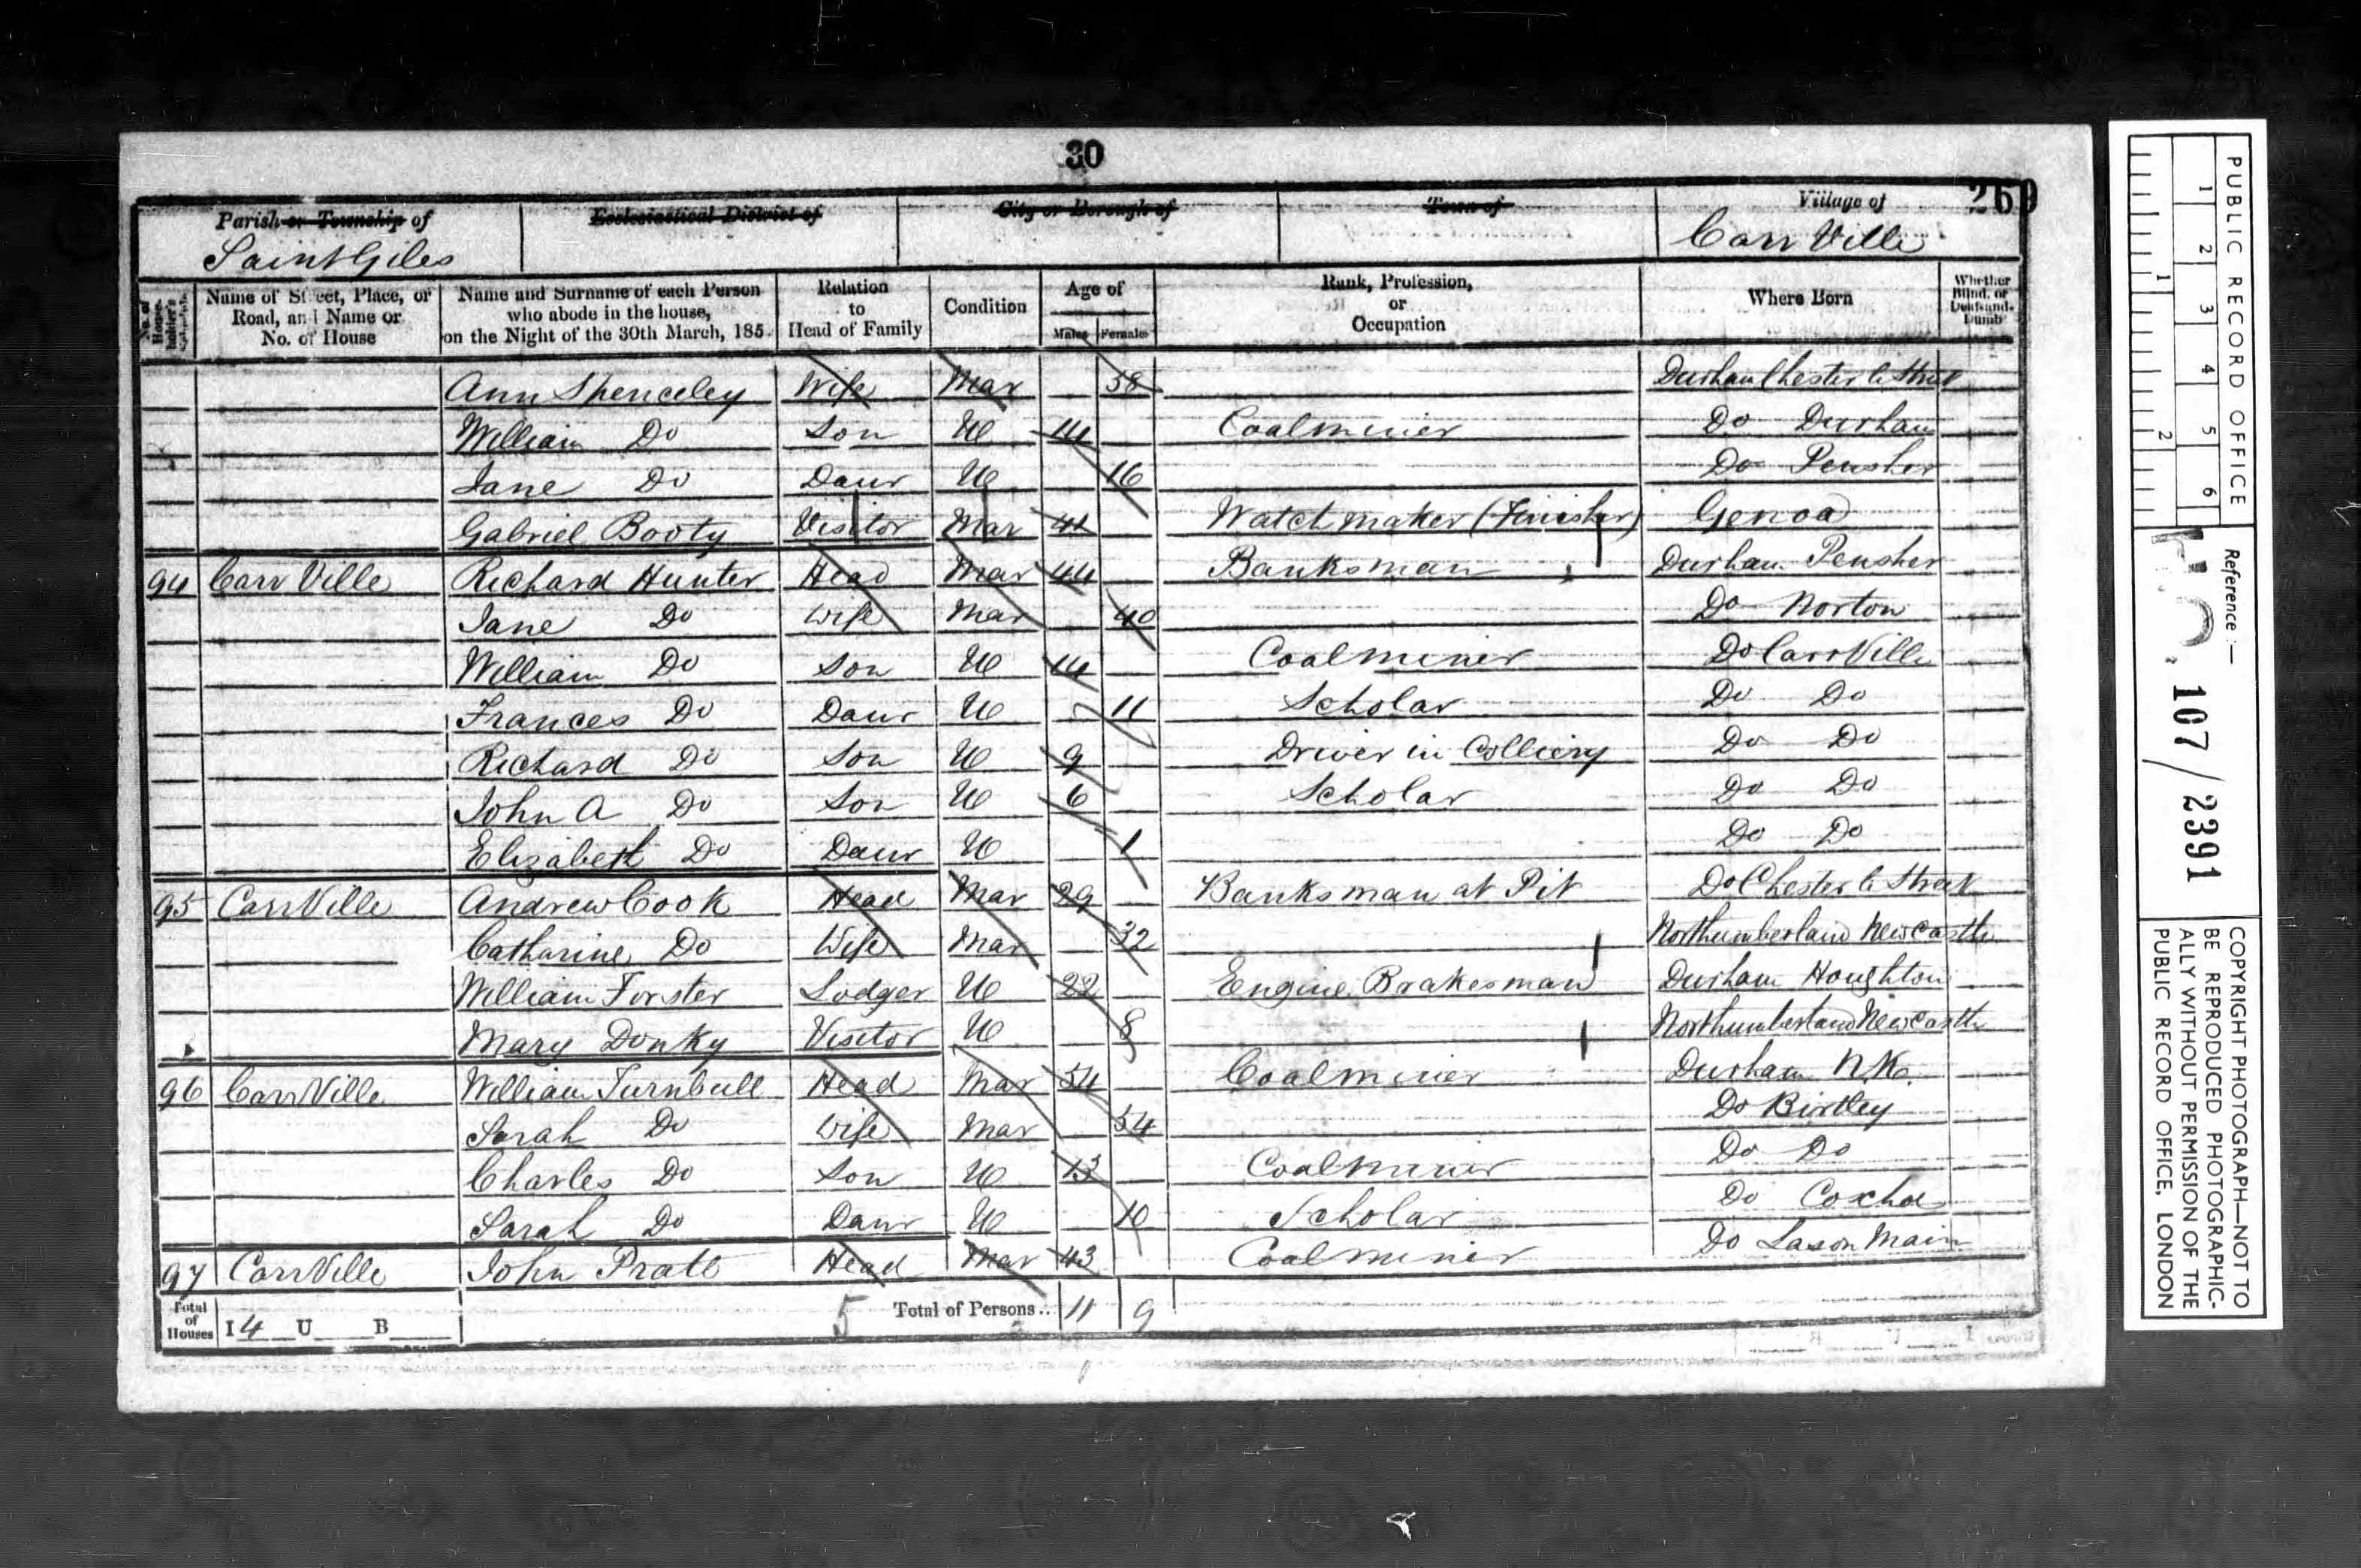 30
269
Parish or Township of
Saint Giles
Ecclesiastical District of
City or Borough of
Town of
Village of
Carr Ville
No. of House-holder's Schedule
Name of Street, Place, or Road, and Name or No. of House
Name and Surname of each Person who abode in the house, on the Night of the 30th March, 185
Relation to Head of Family
Condition
Age of
Males Females
Rank, Profession, or Occupation
Where Born
Whether Blind, or Deaf-and-Dumb
Ann Spenceley Wife Mar 58 Durham Chester le Street
William Do Son U 14 Coalminer Do Durham
Jane Do Daur U 16 Do Pensher
Gabriel Booty Visitor Mar 41 Watchmaker (Finisher) Genoa
94 Carr Ville Richard Hunter Head Mar 44 Banksman Durham Pensher
Jane Do Wife Mar 40 Do Norton
William Do Son U 14 Coalminer Do Carr Ville
Frances Do Daur U 11 Scholar Do Do
Richard Do Son U 9 Driver in Colliery Do Do
John A Do Son U 6 Scholar Do Do
Elizabeth Do Daur U 1 Do Do
95 Carr Ville Andrew Cook Head Mar 29 Banksman at Pit Do Chester le Street
Catharine Do Wife Mar 32 Northumberland Newcastle
William Forster Lodger U 22 Engine Brakesman Durham Houghton
Mary Donky Visitor U 8 Northumberland Newcastle
96 Carr Ville William Turnbull Head Mar 54 Coalminer Durham N.K.
Sarah Do Wife Mar 54 Do Birtley
Charles Do Son U 13 Coalminer Do Do
Sarah Do Daur U 10 Scholar Do Coxhoe
97 Carr Ville John Pratt Head Mar 43 Coalminer Do Lason Main
Total of Houses I 4 U B 5 Total of Persons.. 11 9
PUBLIC RECORD OFFICE
1 2 3 4 5 6
1 2
Reference :-
H.O. 107/2391
COPYRIGHT PHOTOGRAPH—NOT TO
BE REPRODUCED PHOTOGRAPHIC-
ALLY WITHOUT PERMISSION OF THE
PUBLIC RECORD OFFICE, LONDON